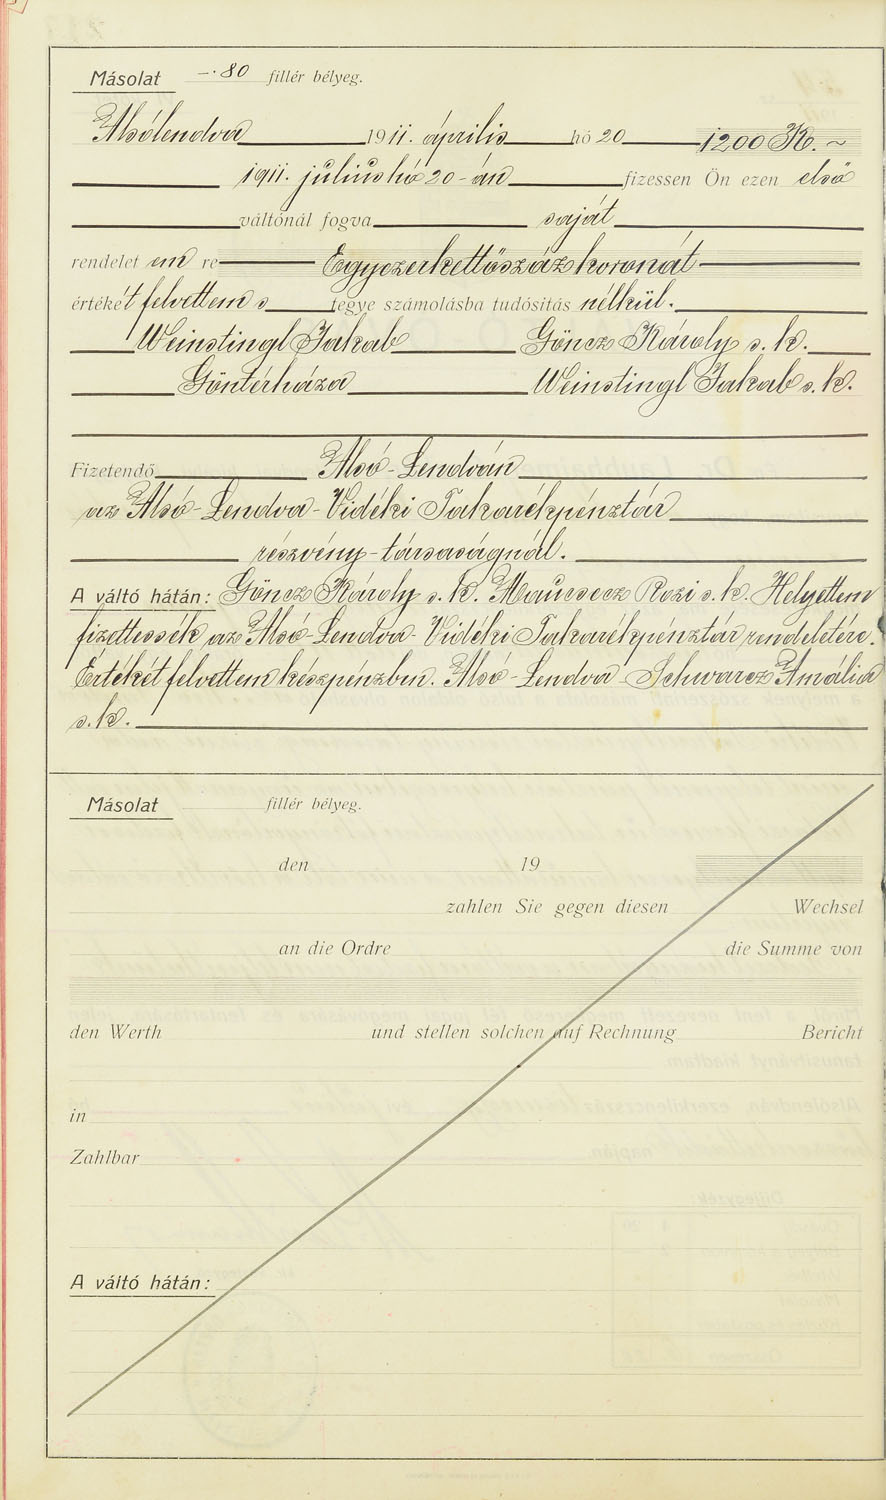 Másolat —·80 fillér bélyeg.
Alsólendva 1911. április hó 20 1200 K. ~
1911. július hó 20-án fizessen Ön ezen első
váltónál fogva saját
rendelet em re Egyezerkettőszáz koronát
értékét felvettem s tegye számolásba tudósitás nélkül.
Weinstingl Jakab Göncz Károly s. k.
Göntérháza Weinstingl Jakab s. k.
Fizetendő Alsó-Lendván
az Alsó-Lendva-Vidéki Takarékpénztár
részvény-társaságnál.
A váltó hátán: Göncz Károly s. k. Rozi s. k. Helyettem
fizettessék az Alsó-Lendva-Vidéki Takarékpénztár rendeletére.
Értékét felvettem készpénzben. Alsó-Lendva Schwarcz Amália
s. k.
Másolat fillér bélyeg.
den 19
zahlen Sie gegen diesen Wechsel
an die Ordre die Summe von
den Werth und stellen solchen auf Rechnung Bericht
in
Zahlbar
A váltó hátán: